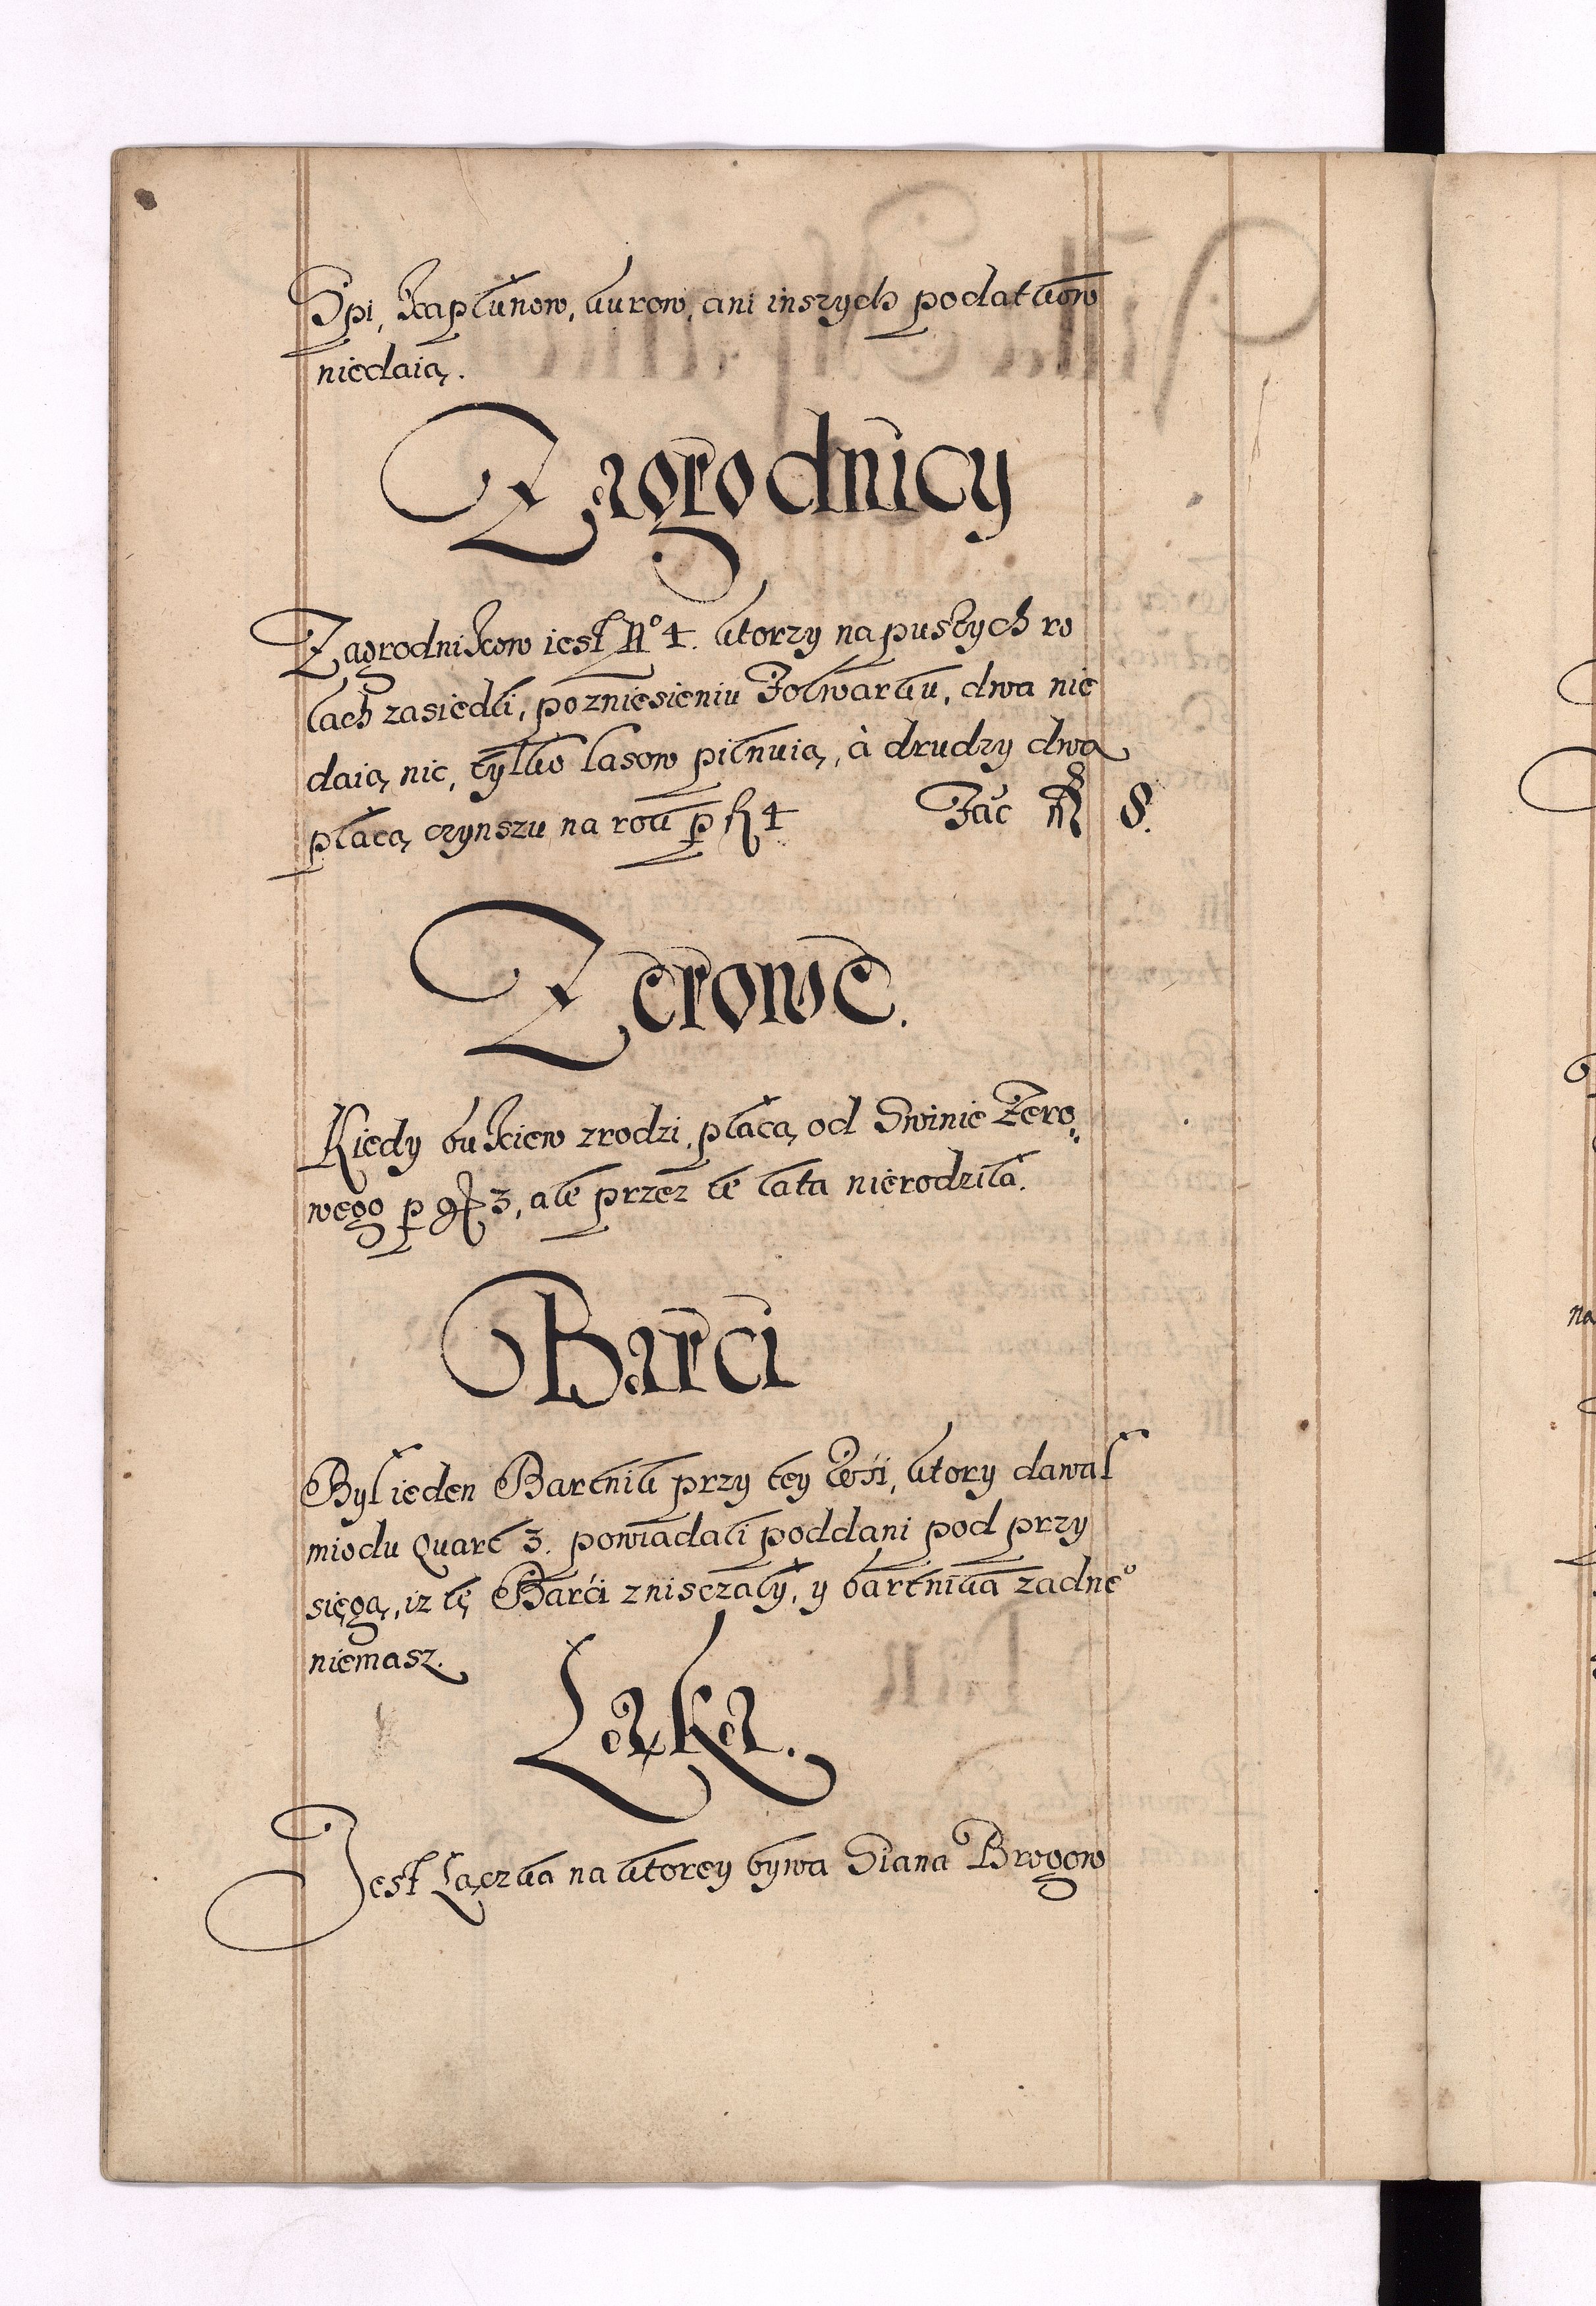 Spi, Kapłunow, kurow, ani inszych podatkow
niedaią.
Zagrodnicy
Zagrodnikow iest Nº 4. ktorzy na pustych ro
lach zasiedli, po zniesieniu Folwarku, dwa nie
daią nic, tylko lasow pilnuią, à drudzy dwa
płacą czynszu na rok p fl 4 Fac fl 8.
Zerowe.
Kiedy bukiew zrodzi, płacą od Swinie Zero,
wego p gr 3, ale przez te lata nierodziła.
Barci
Był ieden Bartnik przy tey Wsi, ktory dawał
miodu Quart 3. powiadali poddani pod przy
sięgą, iz te Barći zniszczały, y bartnika zadneº
niemasz.
Łąka.
Jest Łączka na ktorey bywa Siana Brogow